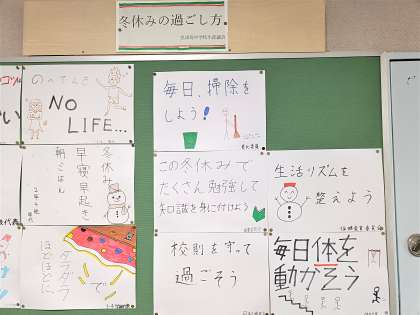 冬休みの過ごし方
NO
LIFE...
毎日、掃除を
しよう!
冬休み
早寝早起き
朝ごはん
この冬休みで
たくさん勉強して
知識を身に付けよう
生活リズムを
整えよう
ダラダラ
で
ほどほどに
校則を守って
過ごそう
毎日体を
動かそう